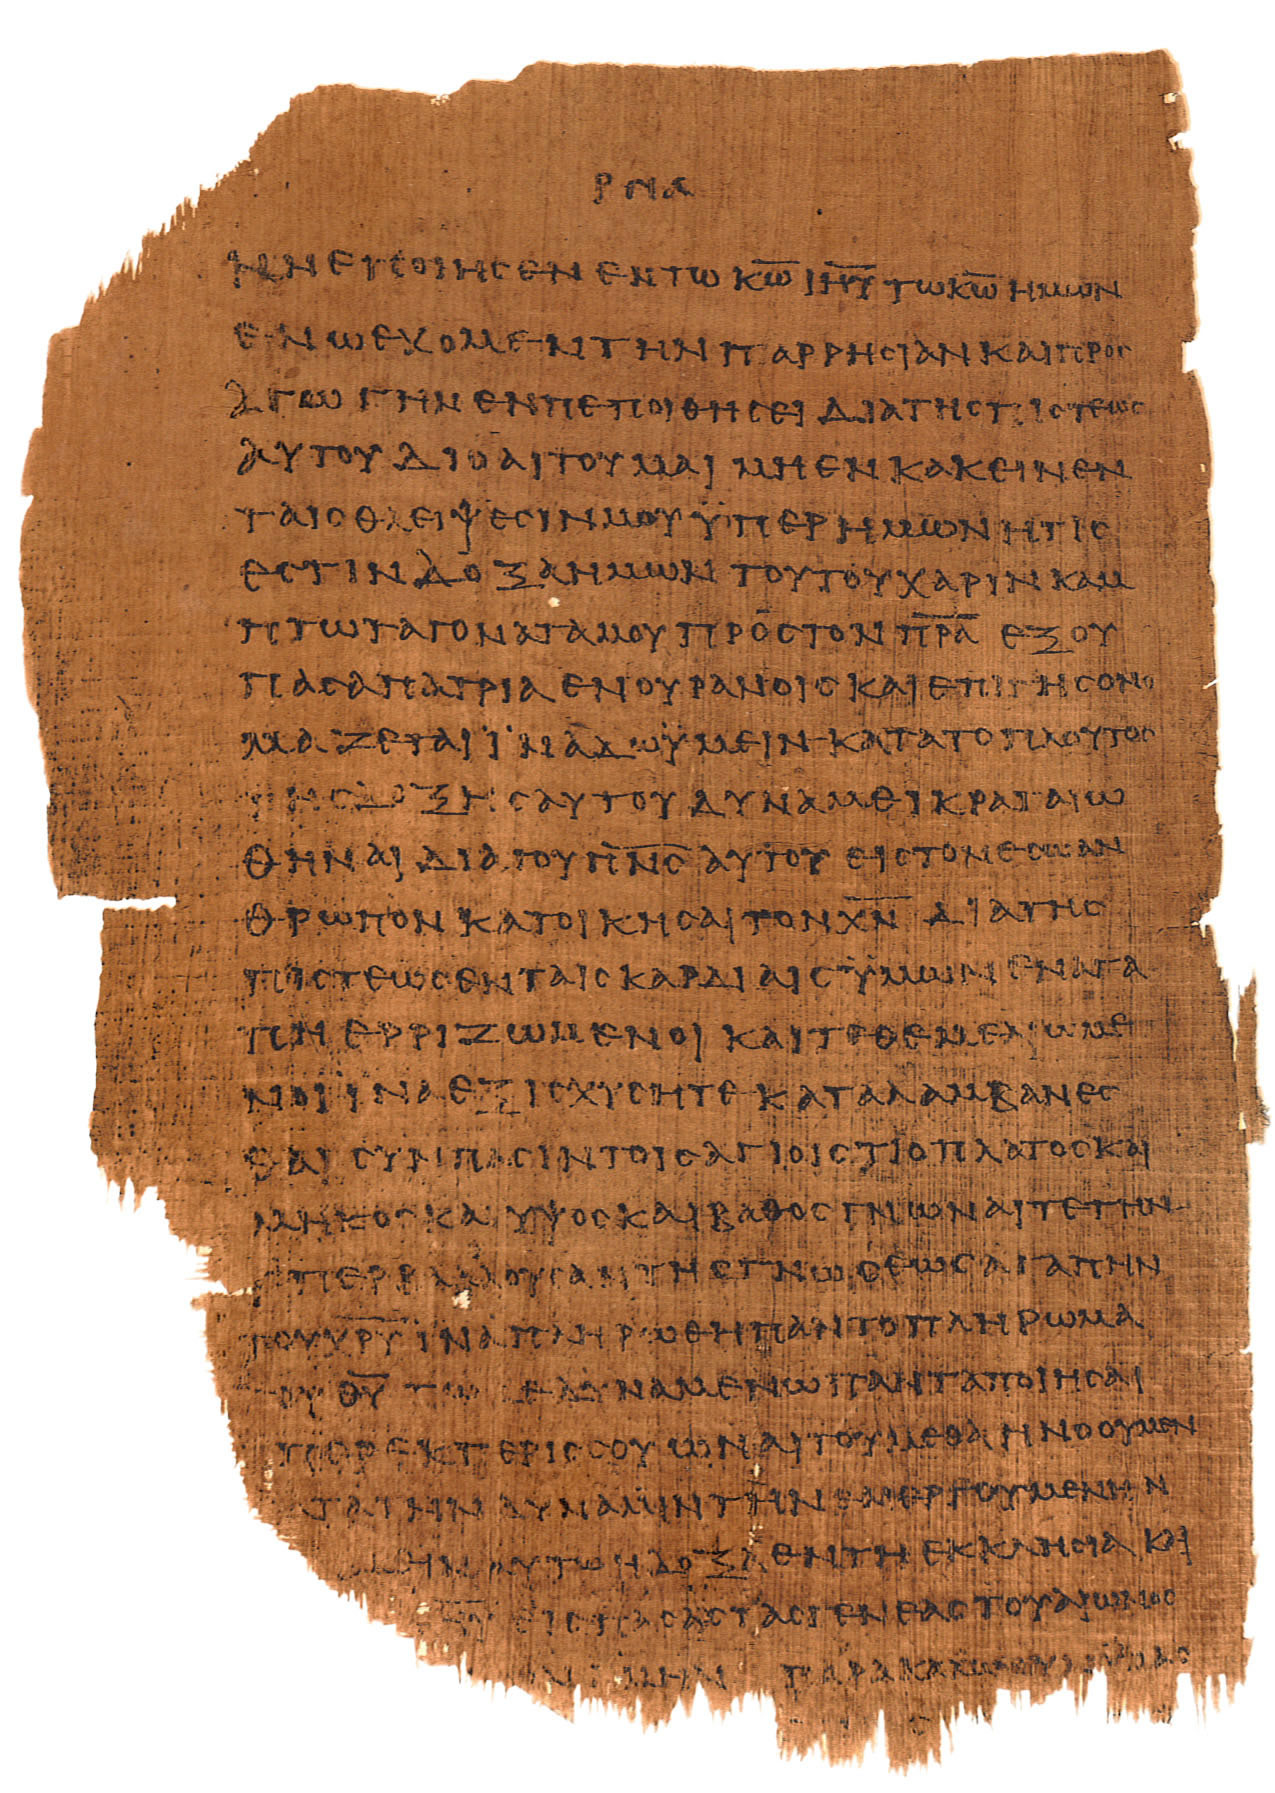 ΡΝΑ
ΗΝ ΕΠΟΙΗСΕΝ ΕΝ ΤΩ Κ̅Ω̅ Ι̅Η̅Υ̅ ΤΩ Κ̅Ω̅ ΗΜΩΝ
ΕΝ Ω ΕΧΟΜΕΝ ΤΗΝ ΠΑΡΡΗСΙΑΝ ΚΑΙ ΠΡΟС
ΑΓΩΓΗΝ ΕΝ ΠΕΠΟΙΘΗСΕΙ ΔΙΑ ΤΗС ΠΙСΤΕΩС
ΑΥΤΟΥ ΔΙΟ ΑΙΤΟΥΜΑΙ ΜΗ ΕΝΚΑΚΕΙΝ ΕΝ
ΤΑΙС ΘΛΕΙΨΕСΙΝ ΜΟΥ ΫΠΕΡ ΗΜΩΝ ΗΤΙС
ΕСΤΙΝ ΔΟΞΑ ΗΜΩΝ ΤΟΥΤΟΥ ΧΑΡΙΝ ΚΑΜ
ΠΤΩ ΤΑ ΓΟΝΑΤΑ ΜΟΥ ΠΡΟС ΤΟΝ Π̅Ρ̅Α̅ ΕΞ ΟΥ
ΠΑСΑ ΠΑΤΡΙΑ ΕΝ ΟΥΡΑΝΟΙС ΚΑΙ ΕΠΙ ΓΗС ΟΝΟ
ΜΑΖΕΤΑΙ ΪΝΑ ΔΩ ΫΜΕΙΝ ΚΑΤΑ ΤΟ ΠΛΟΥΤΟС
ΤΗС ΔΟΞΗС ΑΥΤΟΥ ΔΥΝΑΜΕΙ ΚΡΑΤΑΙΩ
ΘΗΝΑΙ ΔΙΑ ΤΟΥ Π̅Ν̅С̅ ΑΥΤΟΥ ΕΙС ΤΟΝ ΕСΩ ΑΝ
ΘΡΩΠΟΝ ΚΑΤΟΙΚΗСΑΙ ΤΟΝ Χ̅Ν̅ ΔΙΑ ΤΗС
ΠΙСΤΕΩС ΕΝ ΤΑΙС ΚΑΡΔΙΑΙС ΫΜΩΝ ΕΝ ΑΓΑ
ΠΗ ΕΡΡΙΖΩΜΕΝΟΙ ΚΑΙ ΤΕΘΕΜΕΛΙΩΜΕ
ΝΟΙ ΪΝΑ ΕΞΙСΧΥСΗΤΕ ΚΑΤΑΛΑΜΒΑΝΕС
ΘΑΙ СΥΝ ΠΑСΙΝ ΤΟΙС ΑΓΙΟΙС ΤΙ ΤΟ ΠΛΑΤΟС ΚΑΙ
ΜΗΚΟС ΚΑΙ ΥΨΟС ΚΑΙ ΒΑΘΟС ΓΝΩΝΑΙ ΤΕ ΤΗΝ
ΥΠΕΡΒΑΛΛΟΥСΑΝ ΤΗС ΓΝΩСΕΩС ΑΓΑΠΗΝ
ΤΟΥ Χ̅Ρ̅Υ̅ ΪΝΑ ΠΛΗΡΩΘΗ ΠΑΝ ΤΟ ΠΛΗΡΩΜΑ
ΤΟΥ Θ̅Υ̅ ΤΩ ΔΕ ΔΥΝΑΜΕΝΩ ΠΑΝΤΑ ΠΟΙΗСΑΙ
ΥΠΕΡΕΚΠΕΡΙССΟΥ ΩΝ ΑΙΤΟΥΜΕΘΑ Η ΝΟΟΥΜΕΝ
ΚΑΤΑ ΤΗΝ ΔΥΝΑΜΙΝ ΤΗΝ ΕΝΕΡΓΟΥΜΕΝΗΝ
ΕΝ ΗΜΙΝ ΑΥΤΩ Η ΔΟΞΑ ΕΝ ΤΗ ΕΚΚΛΗСΙΑ ΚΑΙ
ΕΙС ΠΑСΑС ΤΑС ΓΕΝΕΑС ΤΟΥ ΑΙΩΝΟС
ΑΜΗΝ ΠΑΡΑΚΑΛΩ ΟΥΝ ΫΜΑС